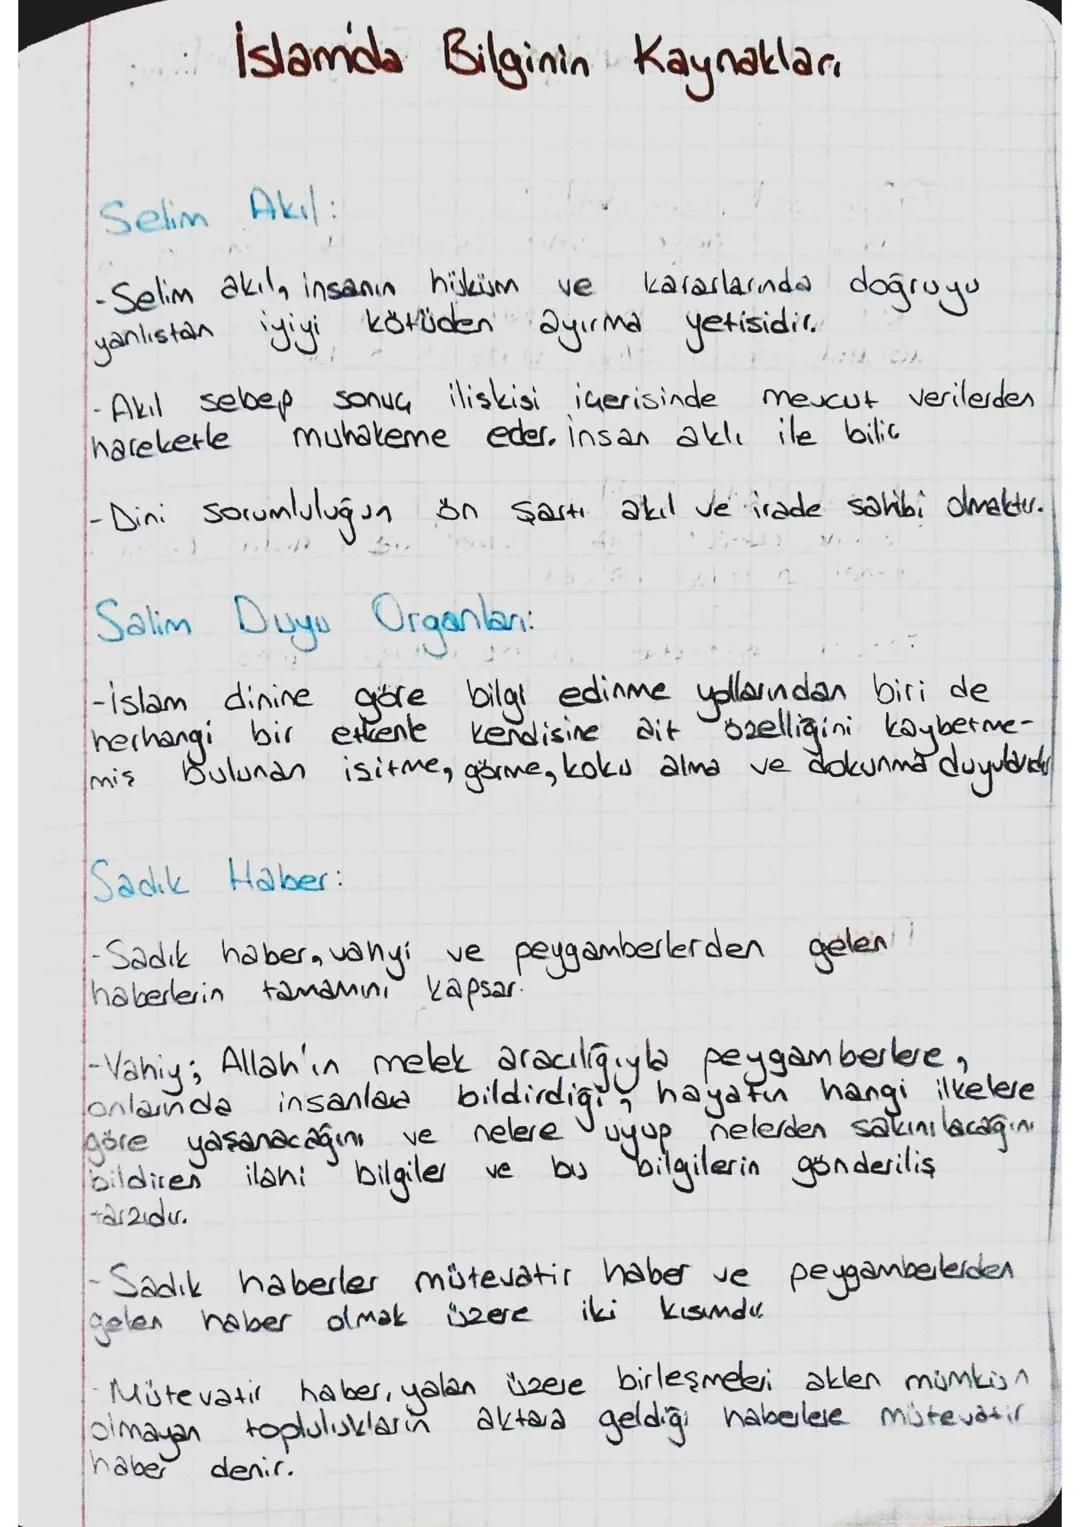 İslam'da Bilginin Kaynakları
Selim Akıl:
-Selim akıl, insanın hüküm ve kararlarında doğruyu
yanlıstan iyiyi kötüden ayırma yetisidir.
-Akıl sebep sonuç ilişkisi içerisinde mevcut verilerden
hareketle muhakeme eder. insan aklı ile bilir
-Dini sorumluluğun ön şartı akıl ve irade sahibi olmaktır.
Salim Duyu Organları:
-islam dinine göre bilgi edinme yollarından biri de
herhangi bir etkenle kendisine ait özelliğini kaybetme-
miş bulunan isitme, görme, koku alma ve dokunma duyularıdır
Sadık Haber:
-Sadık haber, vahyi ve peygamberlerden gelen
haberlerin tamamını kapsar.
-Vahiy; Allah'ın melek aracılığıyla peygamberlere,
onlarında insanlara bildirdiği, hayatın hangi ilkelere
göre yaşanacağını ve nelere uyup nelerden sakınılacağını
bildiren ilahi bilgiler ve bu bilgilerin gönderiliş
tarzıdır.
-Sadık haberler mütevatir haber ve peygamberlerden
gelen haber olmak üzere iki kısımdır
-Mütevatir haber, yalan üzere birleşmeleri aklen mümkün
olmayan toplulukların aktara geldiği haberlere mütevatir
haber denir.